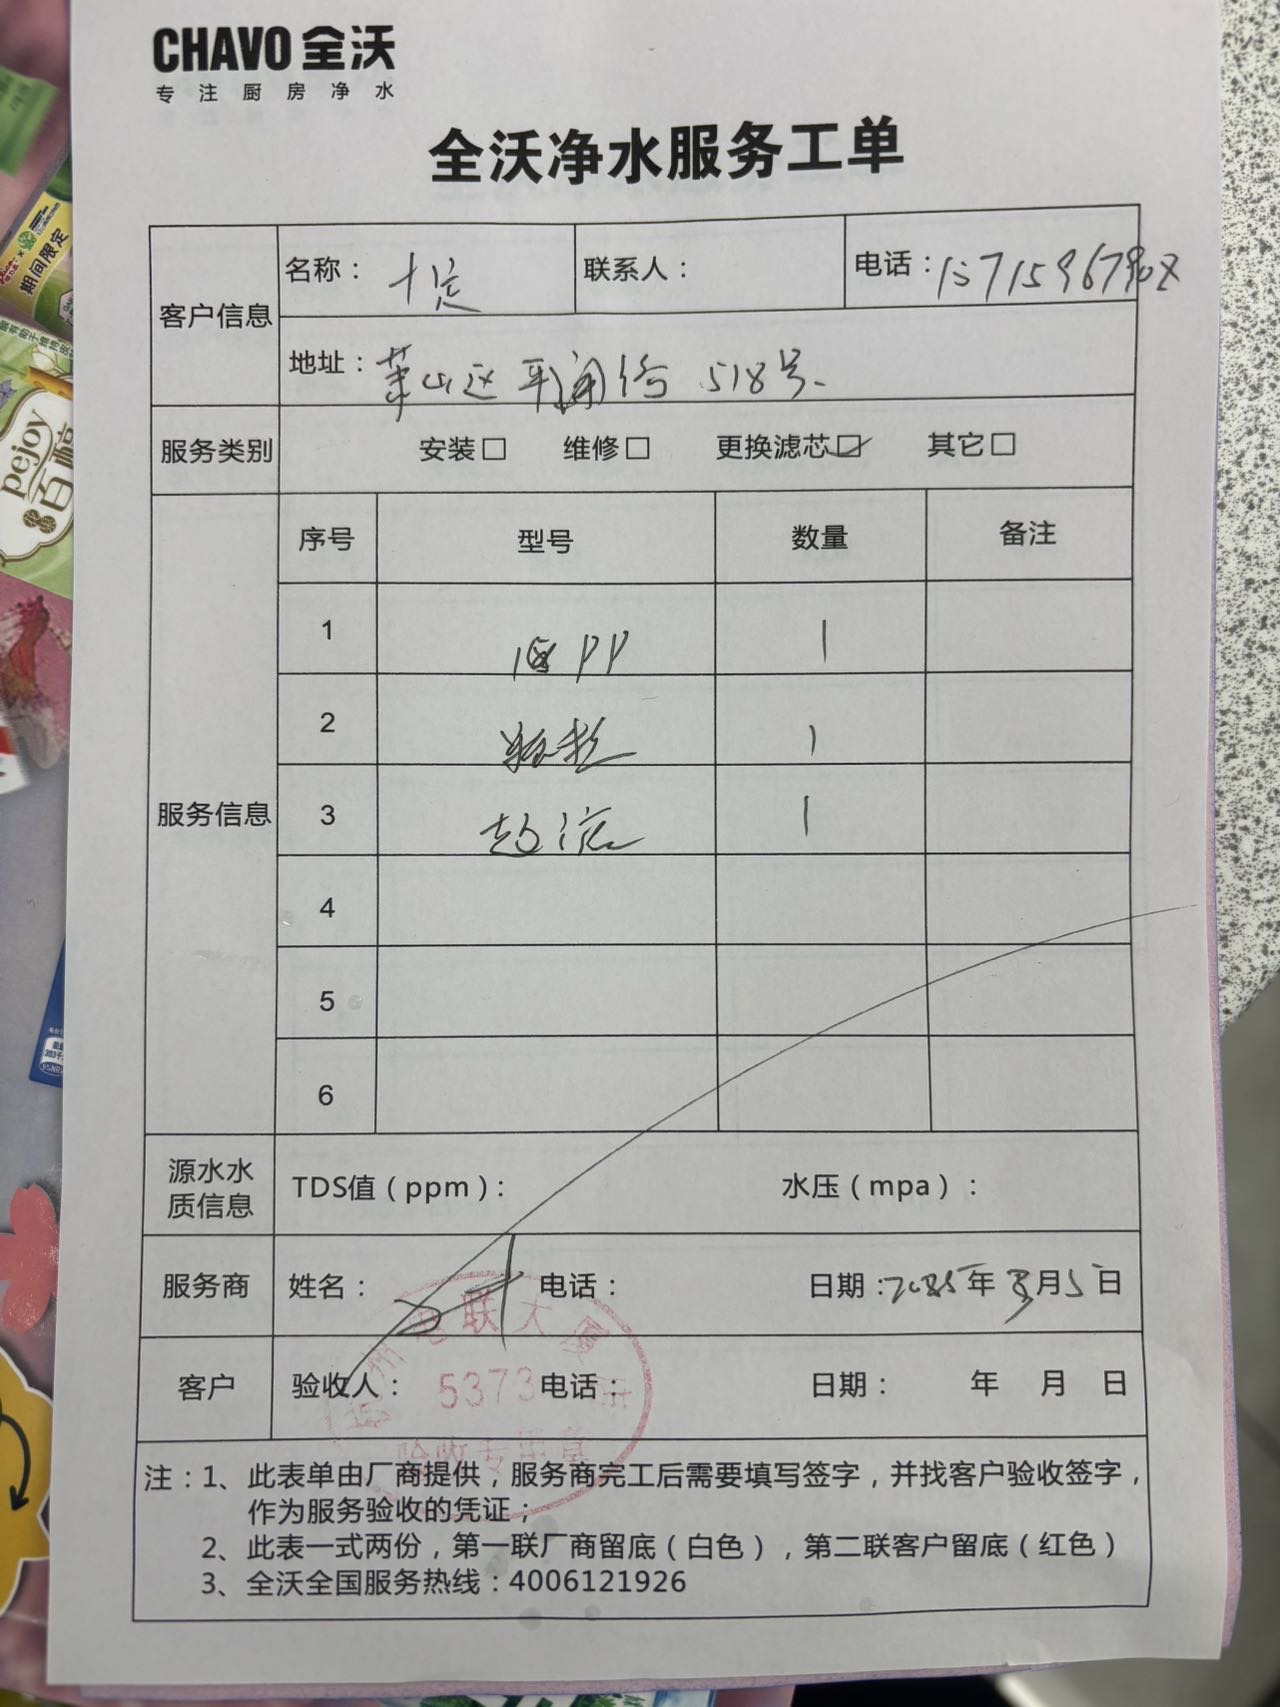 CHAVO 全沃
专注厨房净水
全沃净水服务工单
客户信息
名称：
联系人：
电话：
地址： 萧山区 518号
服务类别 安装□ 维修□ 更换滤芯☑ 其它□
服务信息
序号 型号 数量 备注
1 PP 1
2 1
3 超滤 1
4
5
6
源水水质信息
TDS值（ppm）： 水压（mpa）：
服务商 姓名： 电话： 日期：2025年 月5日
客户 验收人： 电话： 日期： 年 月 日
联大
5373
验收专用章
注：1、此表单由厂商提供，服务商完工后需要填写签字，并找客户验收签字，
作为服务验收的凭证；
2、此表一式两份，第一联厂商留底（白色），第二联客户留底（红色）
3、全沃全国服务热线：4006121926
期间限定
pejoy
百醇